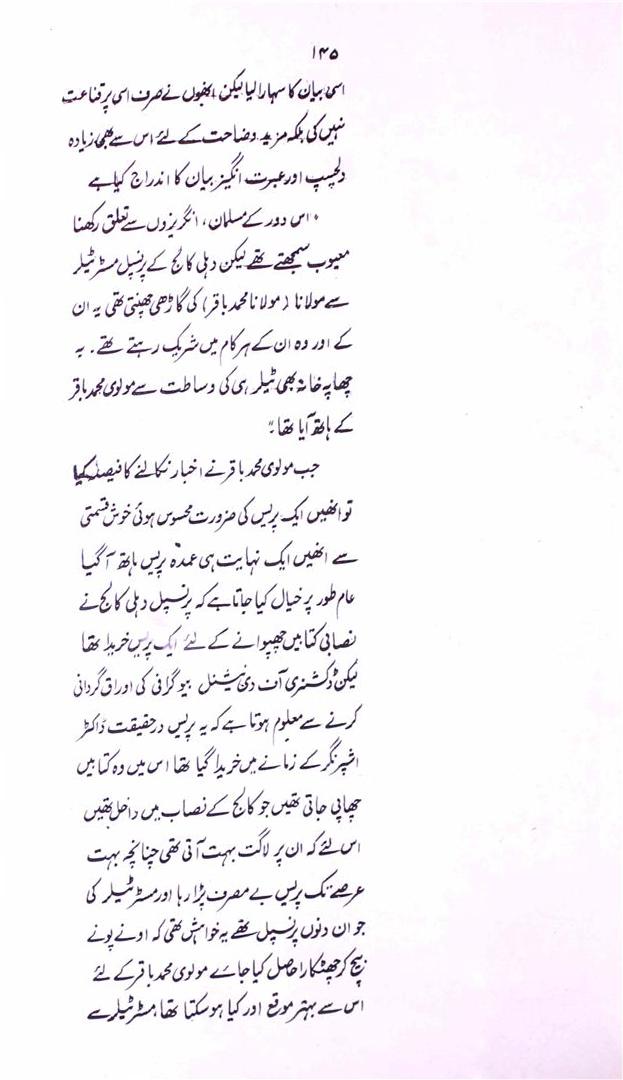 ۱۴۵
اسی بیان کا سہارا لیا لیکن انھوں نے صرف اسی پر قناعت
نہیں کی بلکہ مزید وضاحت کے لئے اس سے بھی زیادہ
دلچسپ اور عبرت انگیز بیان کا اندراج کیا ہے
"اس دور کے مسلمان، انگریزوں سے تعلق رکھنا
معیوب سمجھتے تھے لیکن دہلی کالج کے پرنسپل مسٹر ٹیلر
سے مولانا (مولانا محمد باقر) کی گاڑھی چھنتی تھی یہ ان
کے اور وہ ان کے ہر کام میں شریک رہتے تھے۔ یہ
چھاپہ خانہ بھی ٹیلر ہی کی وساطت سے مولوی محمد باقر
کے ہاتھ آیا تھا۔"
جب مولوی محمد باقر نے اخبار نکالنے کا فیصلہ کیا
تو انھیں ایک پریس کی ضرورت محسوس ہوئی خوش قسمتی
سے انھیں ایک نہایت ہی عمدہ پریس ہاتھ آ گیا
عام طور پر خیال کیا جاتا ہے کہ پرنسپل دہلی کالج نے
نصابی کتابیں چھپوانے کے لئے ایک پریس خریدا تھا
لیکن ڈکشنری آف دی نیشنل بیوگرافی کی اوراق گردانی
کرنے سے معلوم ہوتا ہے کہ یہ پریس درحقیقت ڈاکٹر
اشپرنگر کے زمانے میں خریدا گیا تھا اس میں وہ کتابیں
چھاپی جاتی تھیں جو کالج کے نصاب میں داخل تھیں
اس لئے کہ ان پر لاگت بہت آتی تھی چنانچہ بہت
عرصے تک پریس بے مصرف پڑا رہا اور مسٹر ٹیلر کی
جو ان دنوں پرنسپل تھے یہ خواہش تھی کہ اونے پونے
بیچ کر چھٹکارا حاصل کیا جاے مولوی محمد باقر کے لئے
اس سے بہتر موقع اور کیا ہو سکتا تھا، مسٹر ٹیلر سے